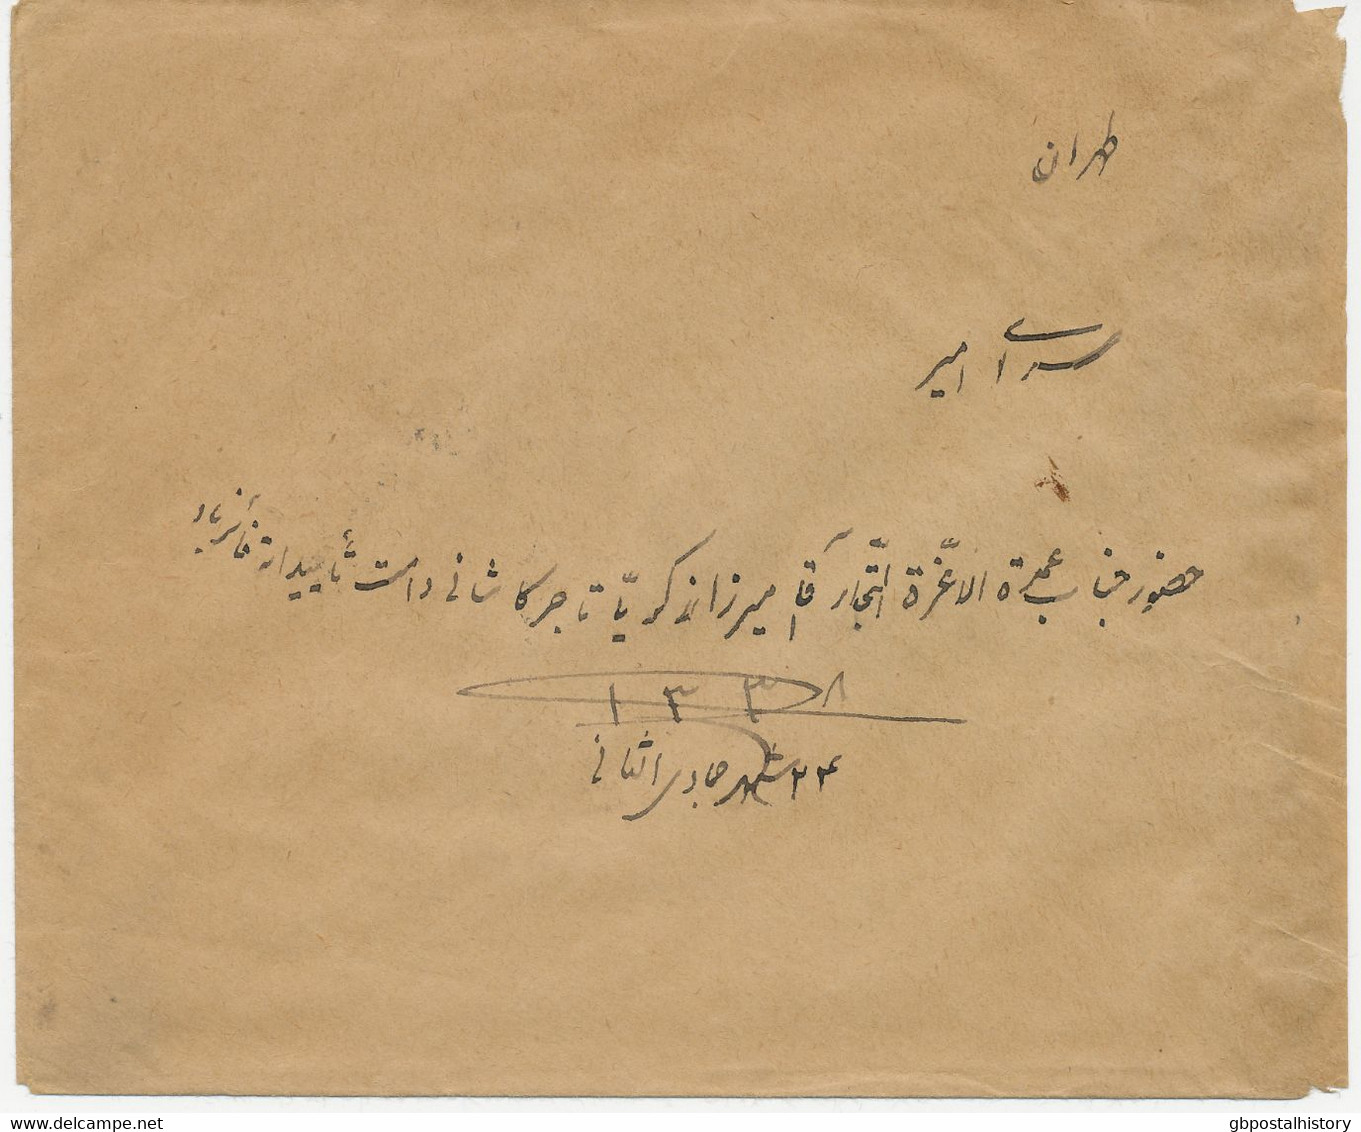 طهران
سرای امیر
حضور جناب عمدة الاعزّة التّجار آقا میرزا زکریّا تاجر کاشانی دامت تأییداته فائز باد
۱۳۳۸
۲۴ شهر جمادی الثانی
www.delcampe.net
gbpostalhistory